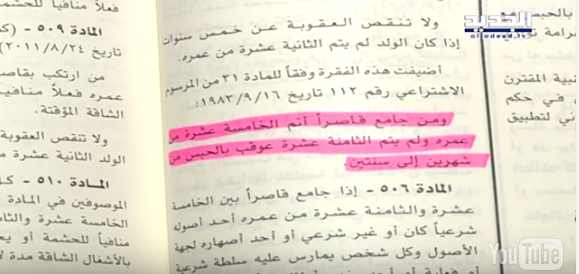 الجديد
aljadeed.tv
ولا تنقص العقوبة عن خمس سنوات
إذا كان الولد لم يتم الثانية عشرة من عمره.
أضيفت هذه الفقرة وفقاً للمادة ٣١ من المرسوم
الاشتراعي رقم ١١٢ تاريخ ١٩٨٣/٩/١٦:
ومن جامع قاصراً أتم الخامسة عشرة من
عمره ولم يتم الثامنة عشرة عوقب بالحبس من
شهرين إلى سنتين.
المادة ٥٠٦ - إذا جامع قاصراً بين الخامسة
عشرة والثامنة عشرة من عمره أحد أصوله
شرعياً كان أو غير شرعي أو أحد أصهاره لجهة
الأصول وكل شخص يمارس عليه سلطة شرعية
فعلاً منافياً
المادة ٥٠٩ -
تاريخ ٢٠١١/٨/٢٤)
من ارتكب بقاصر
عمره فعلاً منافياً
الشاقة المؤقتة.
ولا تنقص العقوبة
الولد الثانية عشرة
المادة ٥١٠ -
الموصوفين في المادة
الخامسة عشرة والثامنة
منافياً للحشمة أو
بالأشغال الشاقة مدة
بالحبس مع
المقترن
في حكم
لتطبيق
YouTube